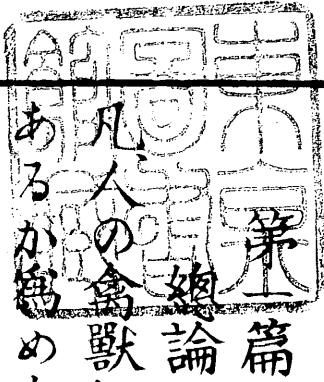 第一篇
總論
凡、人の禽獸
あるか爲め